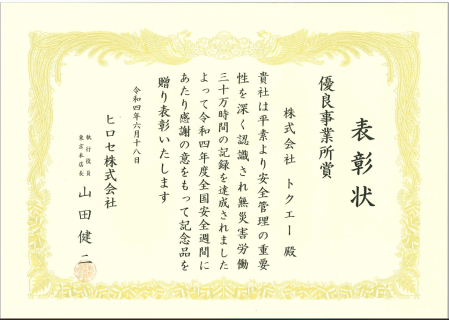 表彰状
優良事業所賞
株式会社 トクエー 殿
貴社は平素より安全管理の重要
性を深く認識され無災害労働
三十万時間の記録を達成されました
よって令和四年度全国安全週間に
あたり感謝の意をもって記念品を
贈り表彰いたします
令和四年六月十八日
ヒロセ株式会社
執行役員
東京本店長
山田健二